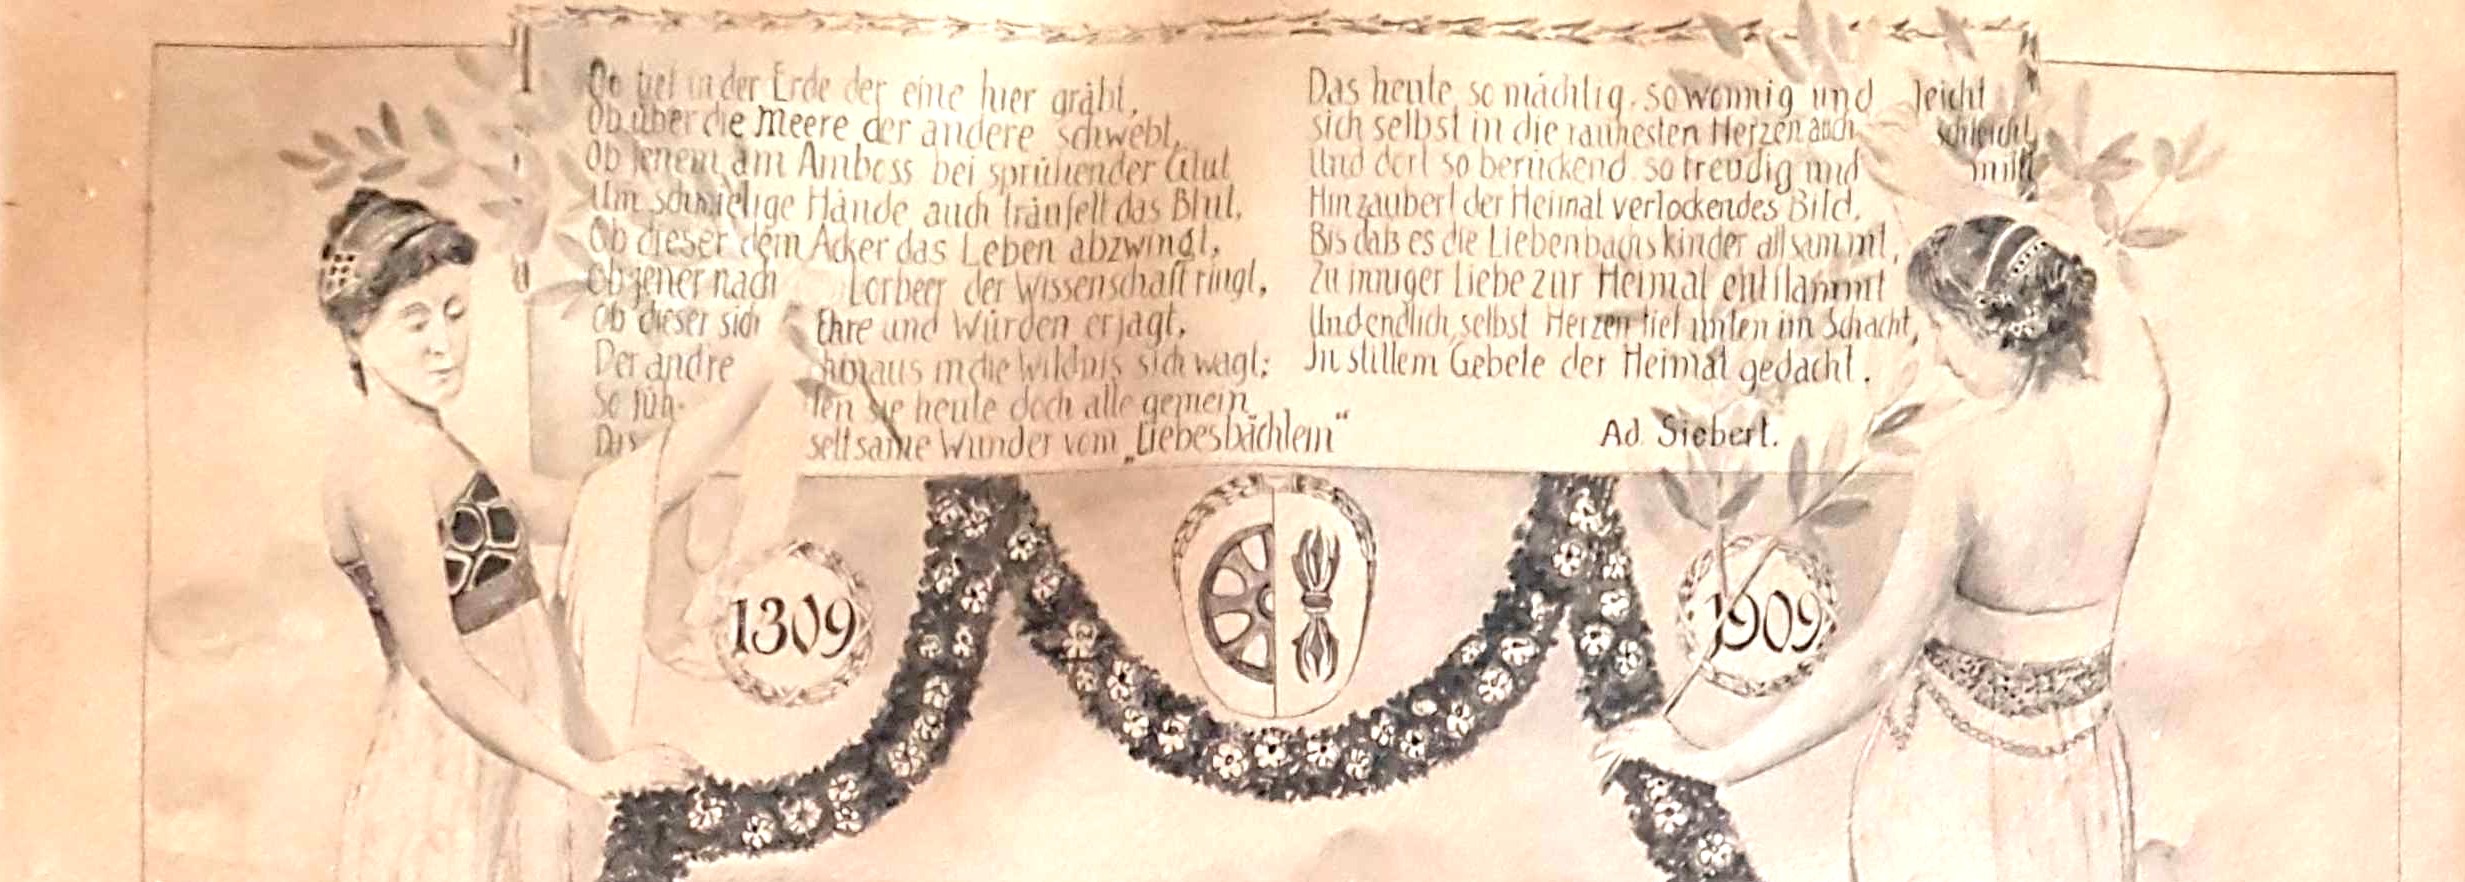 Ob tief in der Erde der eine hier gräbt,
Ob über die Meere der andere schwebt,
Ob jenem am Amboss bei sprühender Glut
Um schwielige Hände auch träufelt das Blut,
Ob dieser dem Acker das Leben abzwingt,
Ob jener nach Lorbeer der Wissenschaft ringt,
Ob dieser sich Ehre und Würden erjagt,
Der andre hinaus in die Wildnis sich wagt:
So füh- len sie heute doch alle gemein
Das seltsame Wunder vom „Liebesbächlein“
Das heute so mächtig, so wonnig und leicht
sich selbst in die rauhesten Herzen auch schleicht,
Und dort so berückend so freudig und mild
Hinzaubert der Heimat verlockendes Bild.
Bis daß es die Liebenbachskinder allsammt,
Zu inniger Liebe zur Heimat entflammt
Und endlich, selbst Herzen tief unten im Schacht,
In stillem Gebete der Heimat gedacht.
Ad. Siebert.
1309
1909